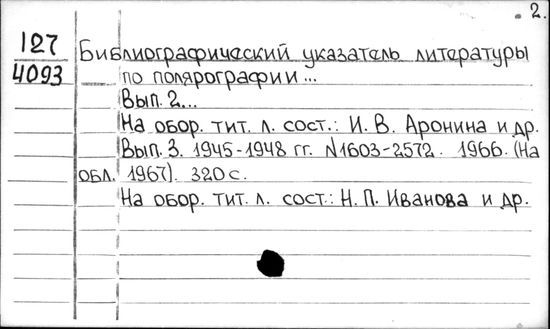 2.
127
4093
Библиографический указатель литературы
по полярографии...
Вып. 2...
На обор. тит. л. сост.: И. В. Аронина и др.
Вып. 3. 1945-1948 гг. N1603-2572. 1966. (На
обл. 1967). 320 с.
На обор. тит. л. сост.: Н. П. Иванова и др.